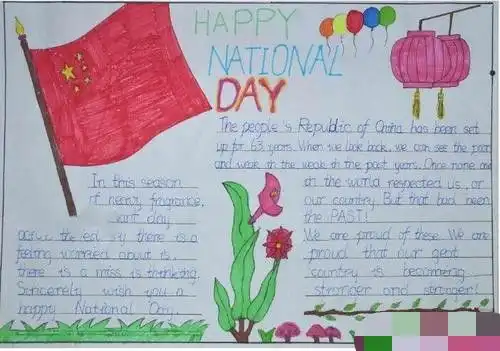 HAPPY
NATIONAL
DAY
The people's Republic of China has been set
up for 63 years. When we look back, we can see the poor
and weak in the weak in the past years. Once none one
in the world respected us, or
our country. But that had been
the PAST!
We are proud of these. We are
proud that our gent
country is becoming
stronger and stronger!
In this season
of heavy fragrance,
day
there is a
feeling worried about is,
there is a miss is thinking.
Sincerely wish you a
happy National Day.